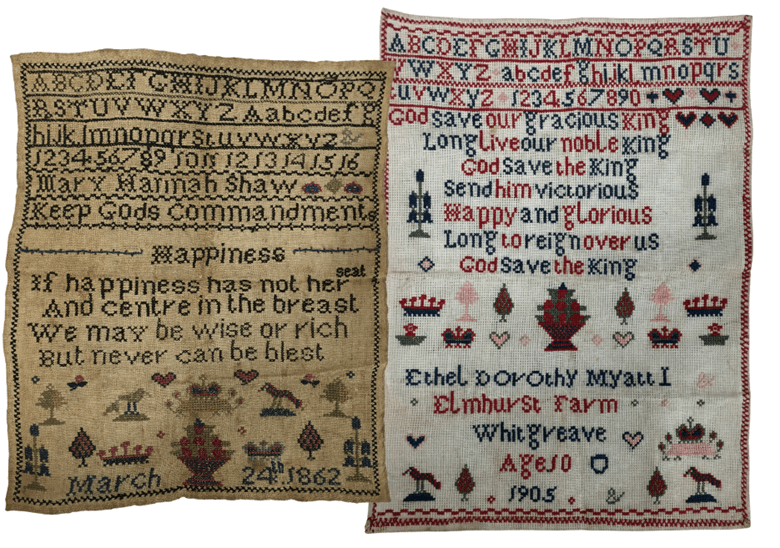 ABCDEFGHIJKLMNOPQ
RSTUVWXYZ Aabcdefg
hijklmnopqrstuvwxyz &
1234567 89 10 11 12 13 14 15 16
Mary Hannah Shaw
Keep Gods Commandments
Happiness
If happiness has not her seat
And centre in the breast
We may be wise or rich
But never can be blest
March 24th 1862
ABCDEFGHIJKLMNOPQRSTU
VWXYZ abcdefghijklmnopqrs
tuvwxyz 1234567890
God save our gracious King
Long live our noble King
God save the King
Send him victorious
Happy and glorious
Long to reign over us
God save the King
Ethel Dorothy Myatt I
Elmhurst Farm
Whitgreave
Age 10
1905 &